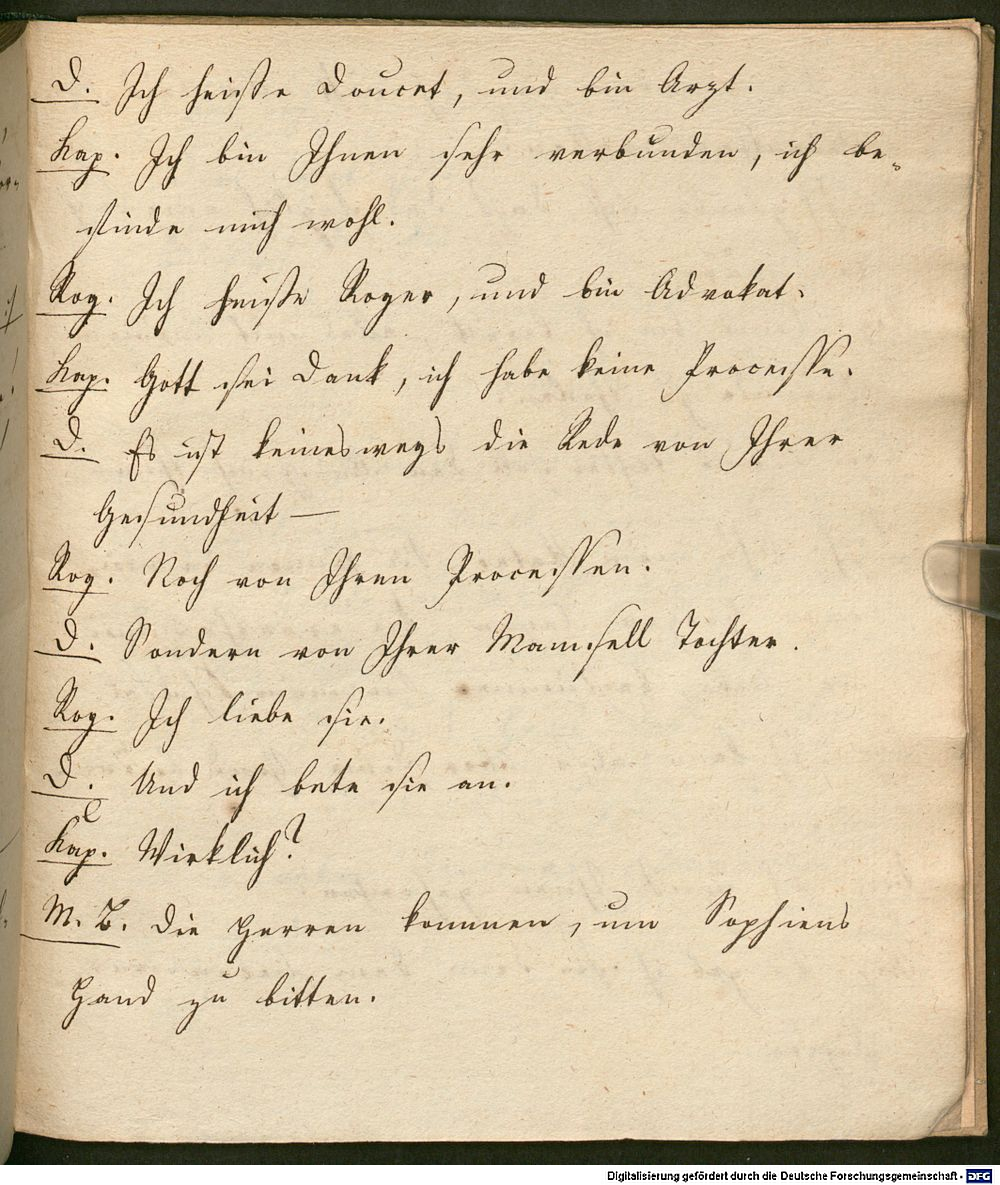 D. Ich heiße Doucet, und bin Arzt.
Kap. Ich bin Ihnen sehr verbunden, ich be-
finde mich wohl.
Rog. Ich heiße Roger, und bin Advokat.
Kap. Gott sei Dank, ich habe keine Processe.
D. Es ist keineswegs die Rede von Ihrer
Gesundheit —
Rog. Noch von Ihren Processen.
D. Sondern von Ihrer Mamsell Tochter.
Rog. Ich liebe sie.
D. Und ich bete sie an.
Kap. Wirklich?
M. B. Die Herren kommen, um Sophiens
Hand zu bitten.
Digitalisierung gefördert durch die Deutsche Forschungsgemeinschaft - DFG